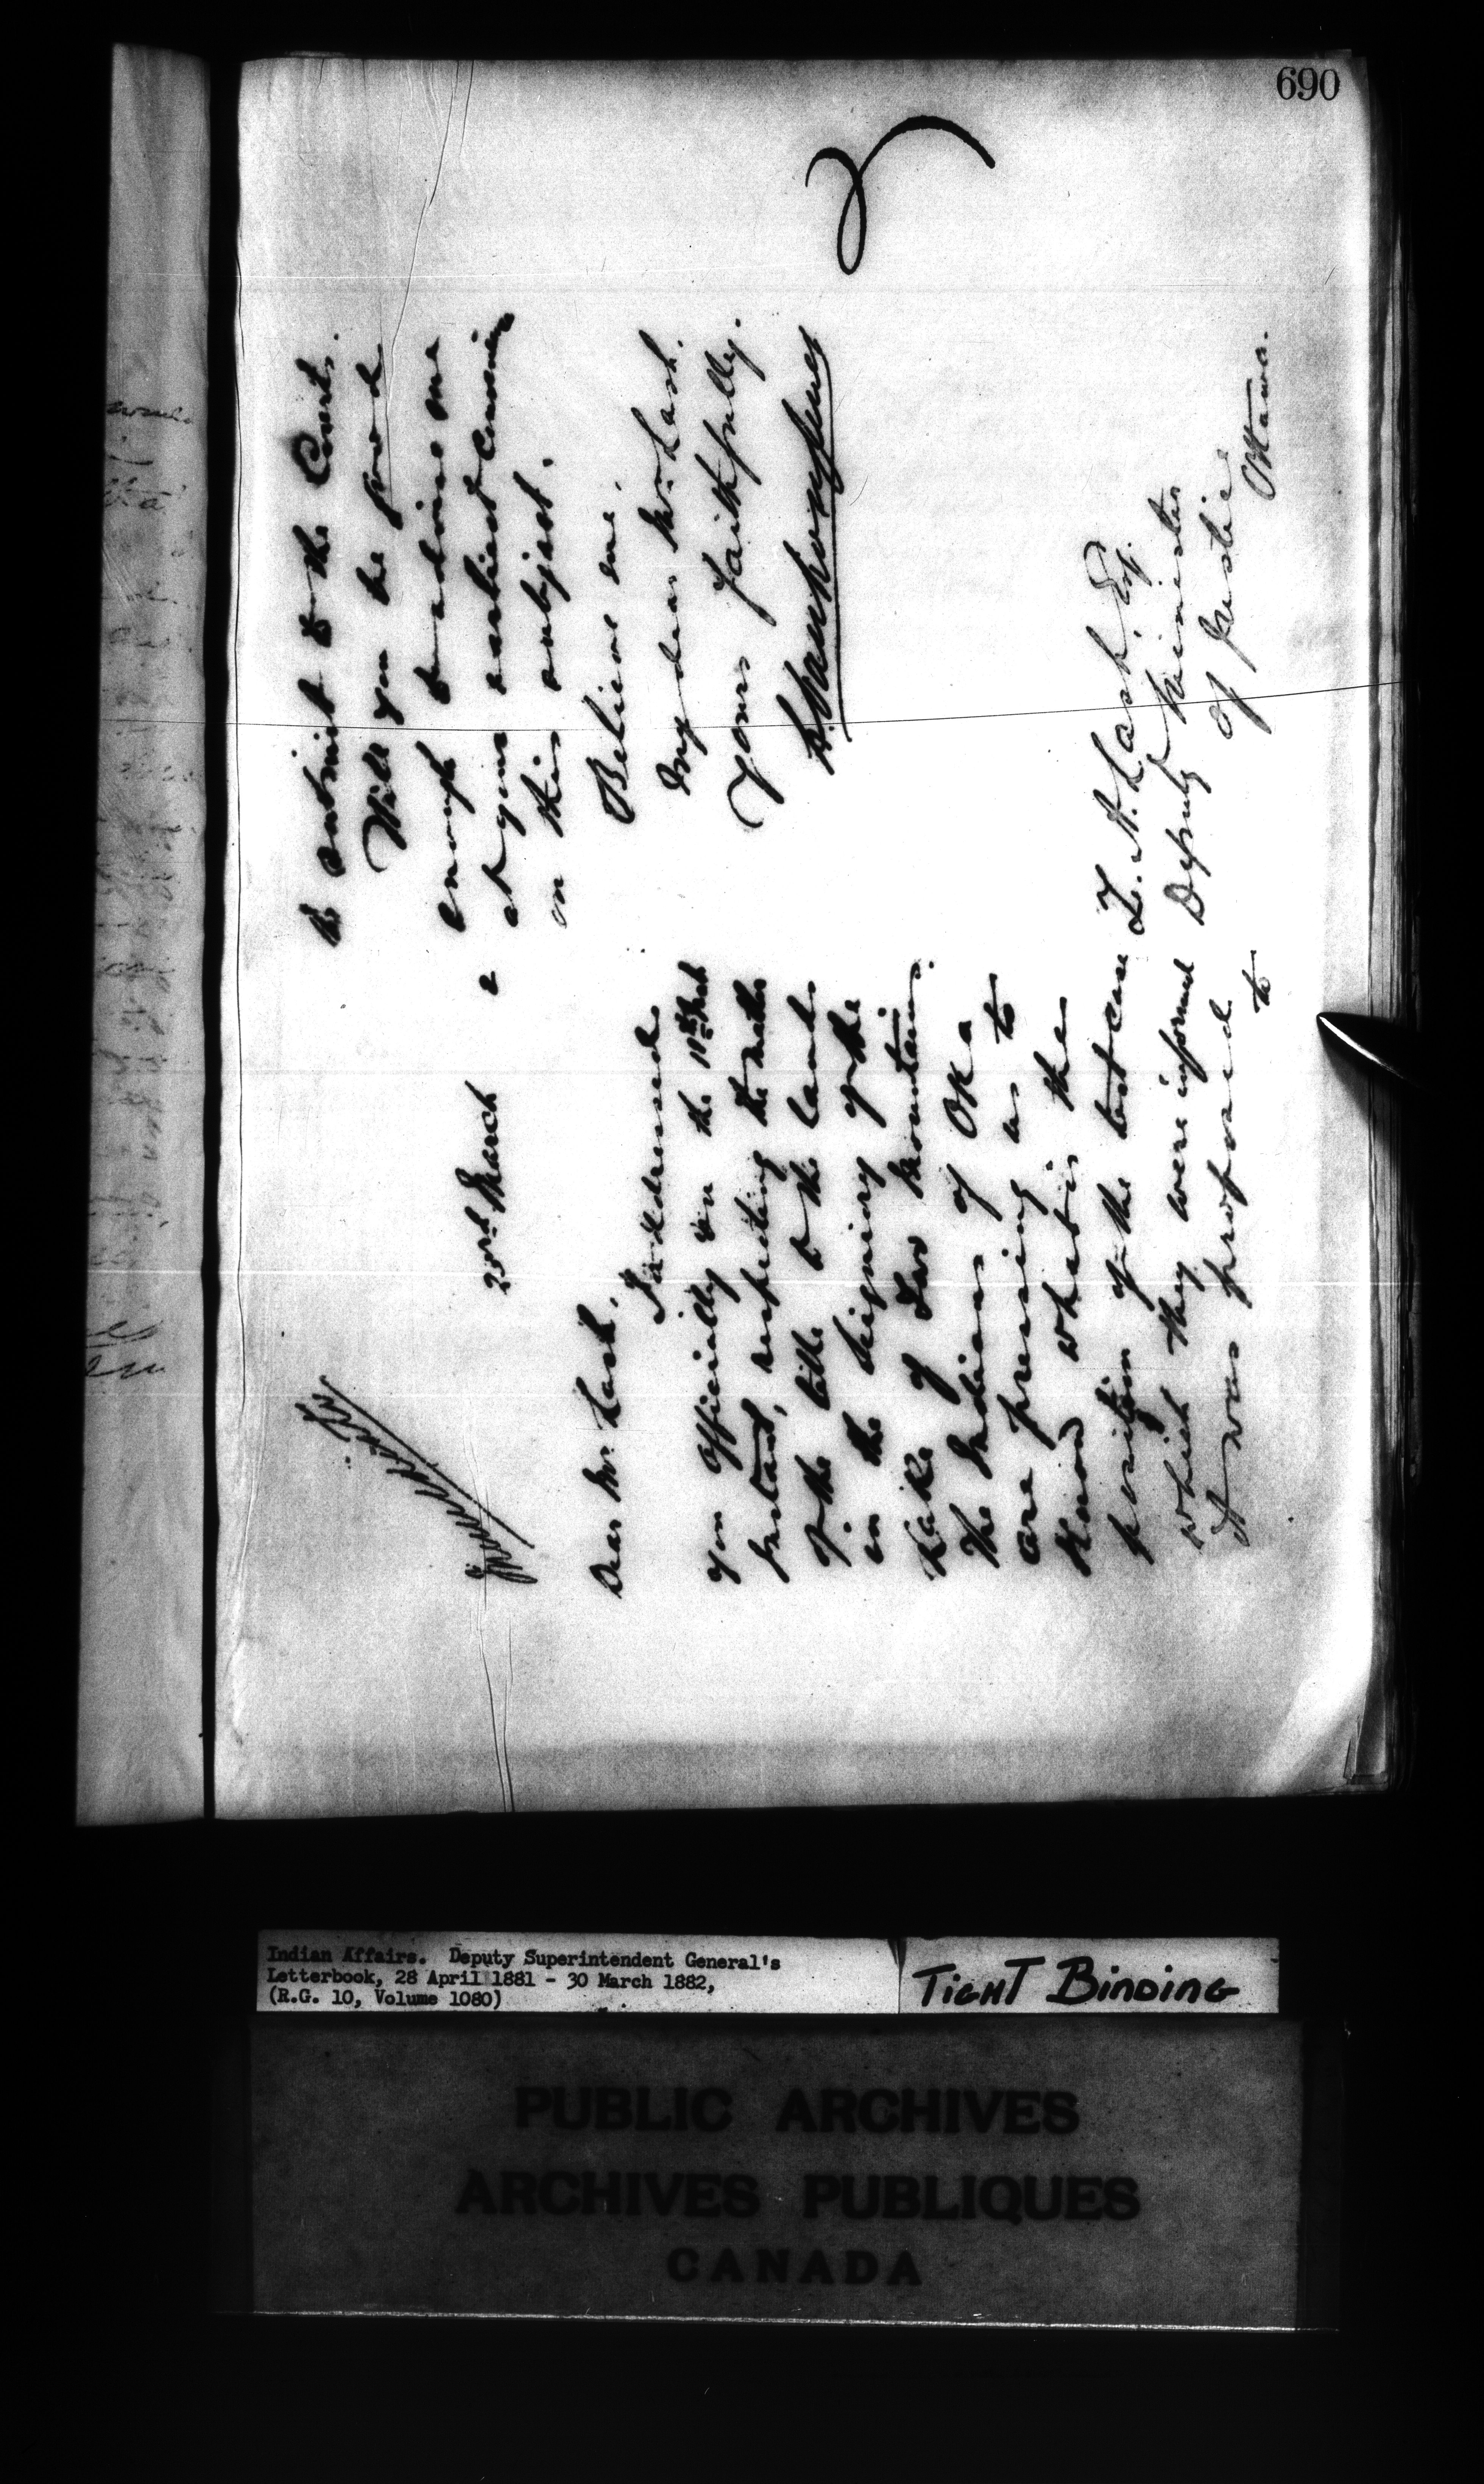 690
25th March 2
Dear Mr. Lash,
I addressed
you officially on the 11th
Instant, respecting the matter
of the title to the lands
in the Seigniory of the
Lake of Two Mountains.
The Indians of Oka
are pressing us to
know what is the
position of the test case
which they were informed
it was proposed to
to submit to the Courts.
Will you be good
enough to advise me
at your earliest
on this subject.
Believe me
My dear Mr. Lash.
Yours faithfully.
L. Vankoughnet
Z. A. Lash Esq.
Deputy Minister
of Justice
Ottawa.
Indian Affairs. Deputy Superintendent General's
Letterbook, 28 April 1881 - 30 March 1882,
(R.G. 10, Volume 1080)
TIGHT BINDING
PUBLIC ARCHIVES
ARCHIVES PUBLIQUES
CANADA